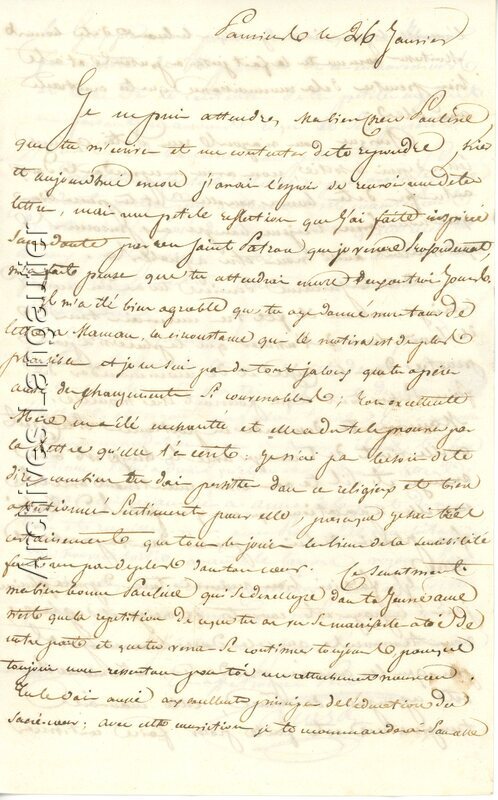 le 26 Janvier
Je ne puis attendre, ma bien chère Pauline
que tu m'écrive et me contenter de te repondre, hier
et aujourd'hui encore j'avais l'espoir de recevoir une de tes
lettre, mais une petite reflection que j'ai faite inspirée
sans doute par ton Saint Patron que je revere profondement,
m'a fait penser que tu attendrai encore deux ou trois jours.
Il m'a été bien agreable que tu aye donné mon tour de
lettre a Maman, la circonstance que le motivait de plus
et je ne suis pas du tout jaloux que tu apere
aussi de changements si convenables; ton excellente
Mère en a été enchantée et elle a du te le prouver par
la lettre qu'elle t'a écrite: je n'ai pas besoin de te
dire combien tu dois persister dans ce religieux et bien
affectionné sentiment pour elle, parceque je sais très
certainement que tous les jours le bien de la sensibilité
fait un pas de plus dans ton cœur. Ce sentiment
ma bien bonne Pauline qui se developpe dans ta jeune ame
n'est que la repetition de ce qui se manifeste a toi de
notre part et que tu verra se continuer toujours parceque
toujours nous ressentons pour toi un attachement
Tu le dois aussi aux excellents principes de l'éducation du
sacré-cœur: avec cette je te recommanderai sans cesse
Archives Marigalipel